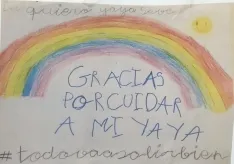 GRACIAS
POR CUIDAR
A MI YAYA
#todovaasalirbien